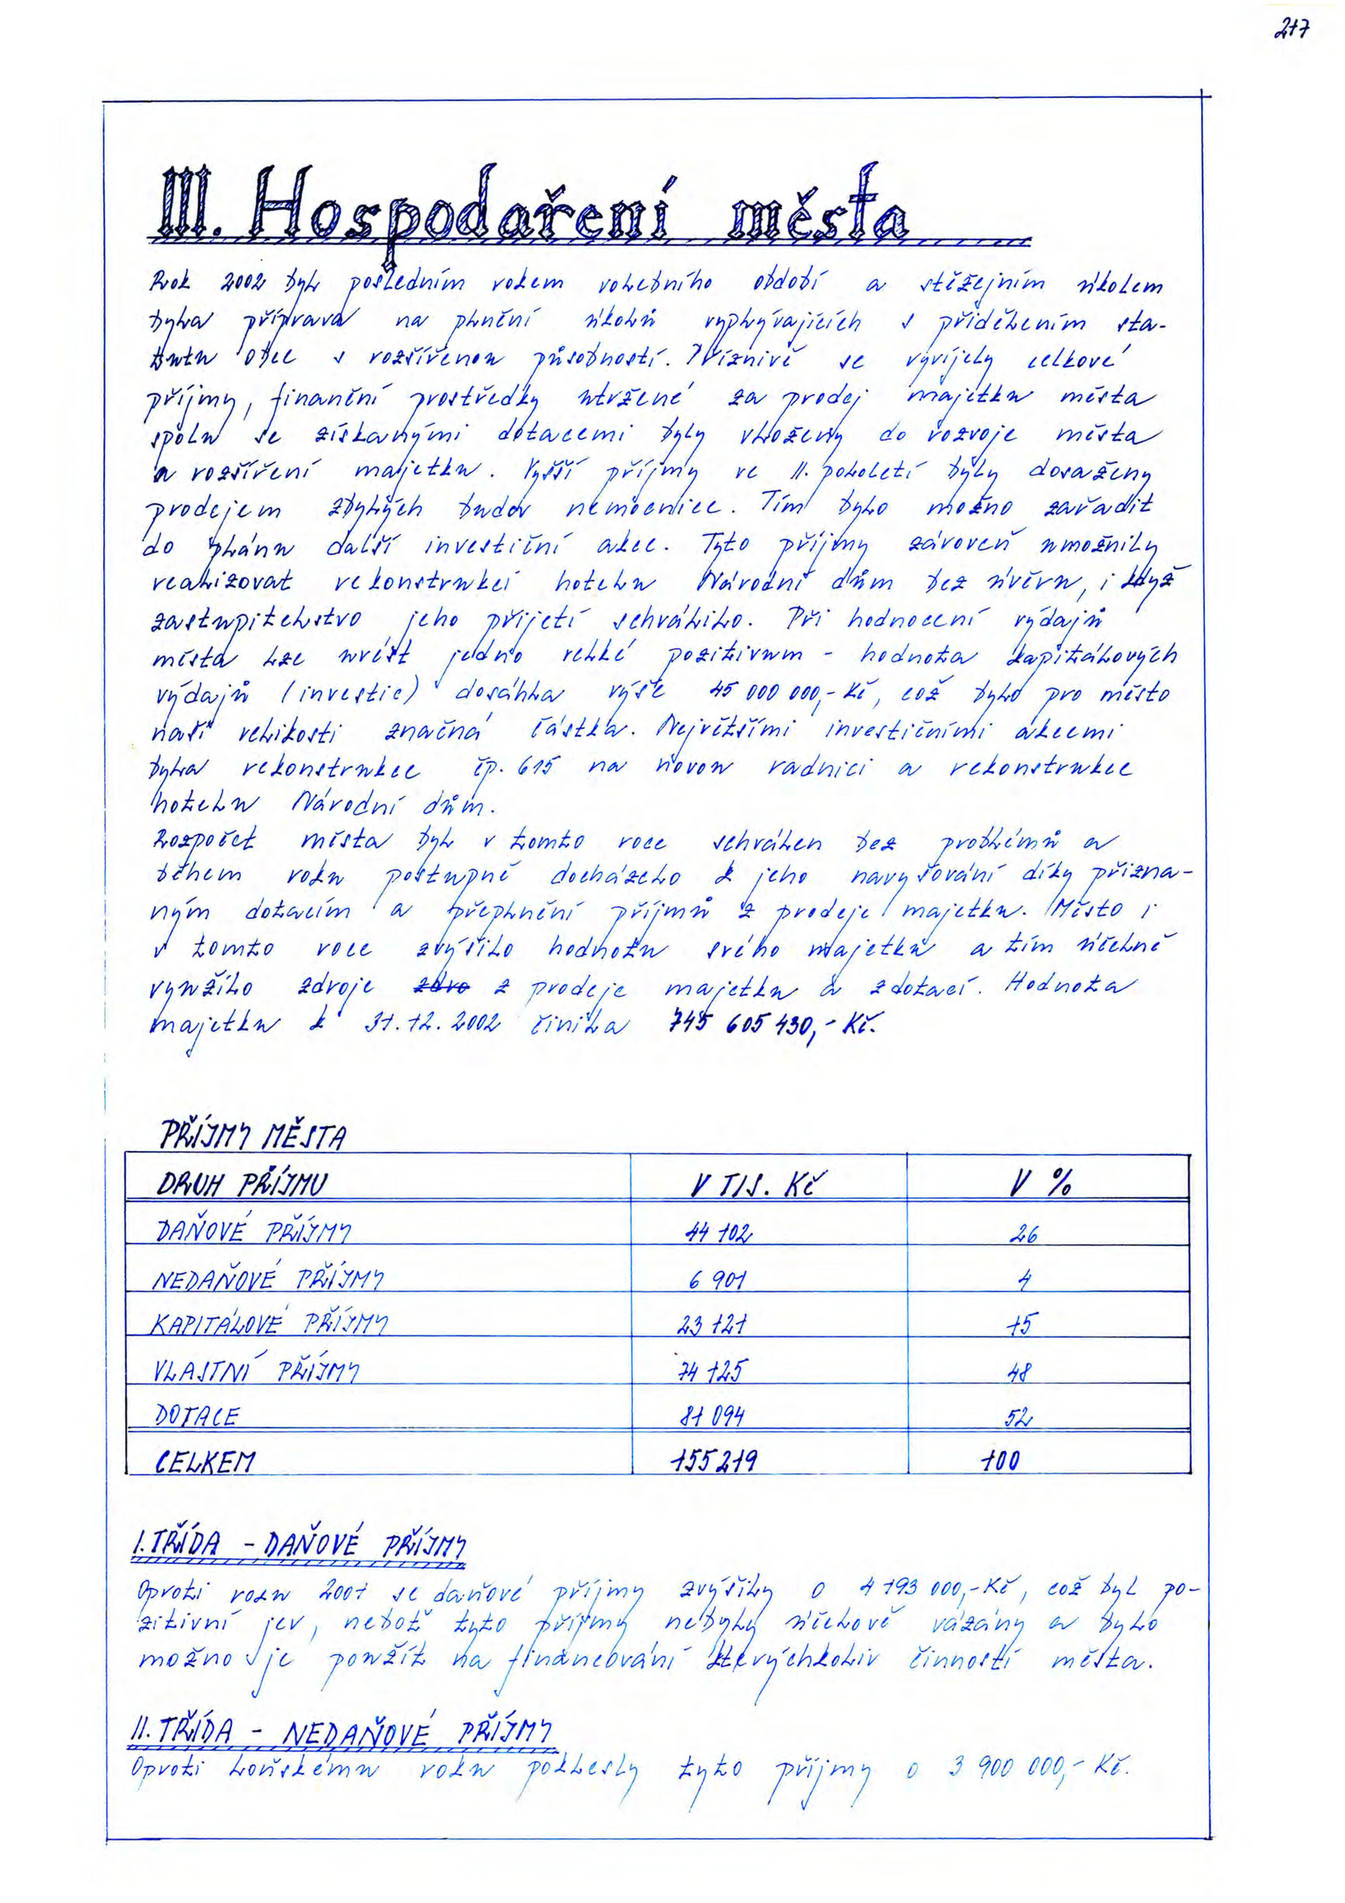 217
III. Hospodaření města
Rok 2002 byl posledním rokem volebního období a stěžejním úkolem
byla příprava na plnění úkolů vyplývajících s přidělením sta-
tutu obce s rozšířenou působností. Příznivě se vyvíjely celkové
příjmy, finanční prostředky utržené za prodej majetku města
spolu se získanými dotacemi byly vloženy do rozvoje města
a rozšíření majetku. Vyšší příjmy ve II. pololetí byly dosaženy
prodejem zbylých budov nemocnice. Tím bylo možno zařadit
do plánu další investiční akce. Tyto příjmy zároveň umožnily
realizovat rekonstrukci hotelu Národní dům bez úvěru, i když
zastupitelstvo jeho přijetí schválilo. Při hodnocení výdajů
města lze uvést jedno velké pozitivum - hodnota kapitálových
výdajů (investic) dosáhla výše 45 000 000,- Kč, což bylo pro město
naší velikosti značná částka. Největšími investičními akcemi
byla rekonstrukce čp. 615 na novou radnici a rekonstrukce
hotelu Národní dům.
Rozpočet města byl v tomto roce schválen bez problémů a
během roku postupně docházelo k jeho navyšování díky přizna-
ným dotacím a přeplnění příjmů z prodeje majetku. Město i
v tomto roce zvýšilo hodnotu svého majetku a tím účelně
využilo zdroje zdro z prodeje majetku a z dotací. Hodnota
majetku k 31.12.2002 činila 745 605 430,- Kč.
PŘÍJMY MĚSTA
DRUH PŘÍJMU V TIS. Kč V %
DAŇOVÉ PŘÍJMY 44 102 26
NEDAŇOVÉ PŘÍJMY 6 901 4
KAPITÁLOVÉ PŘÍJMY 23 121 15
VLASTNÍ PŘÍJMY 74 125 48
DOTACE 81 094 52
CELKEM 155 219 100
I. TŘÍDA - DAŇOVÉ PŘÍJMY
Oproti roku 2001 se daňové příjmy zvýšily o 4 193 000,- Kč, což byl po-
zitivní jev, neboť tyto příjmy nebyly účelově vázány a bylo
možno je použít na financování kterýchkoliv činností města.
II. TŘÍDA - NEDAŇOVÉ PŘÍJMY
Oproti loňskému roku poklesly tyto příjmy o 3 900 000,- Kč.